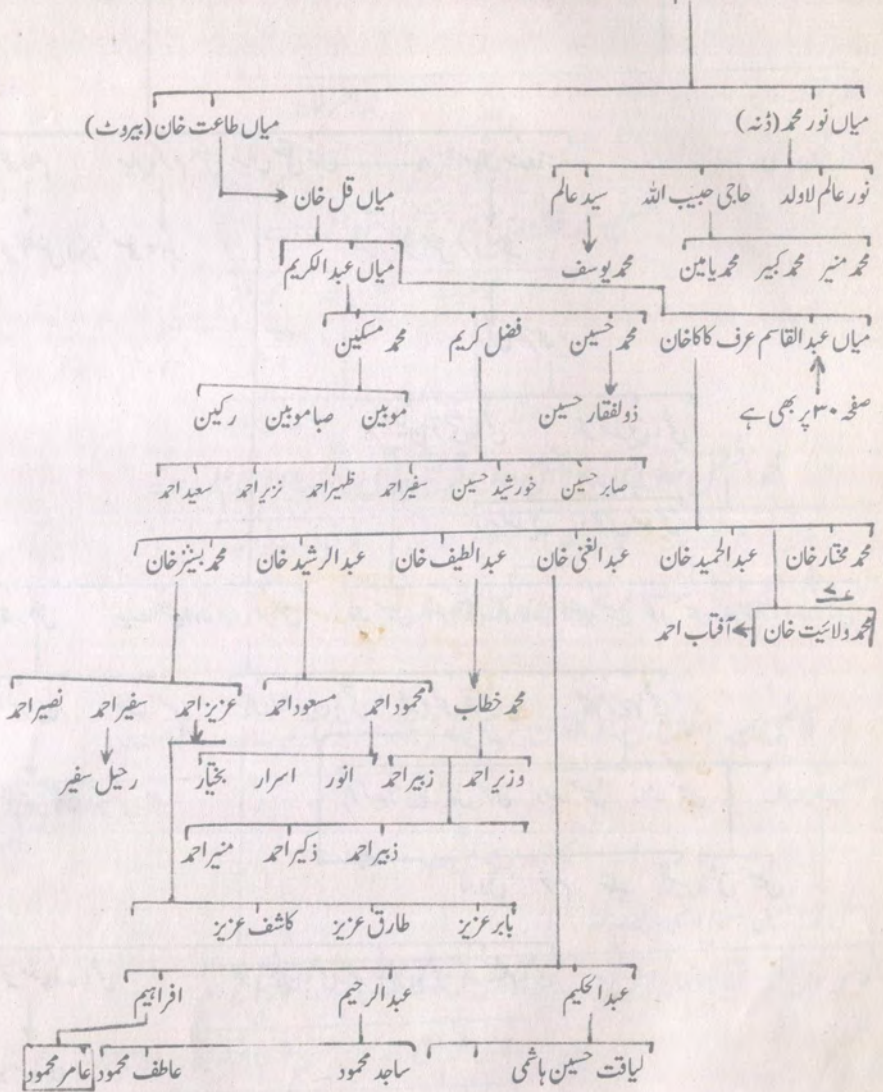 میاں نور محمد (ڈنہ) میاں طاعت خان (بیروٹ)
نور عالم لاولد حاجی حبیب اللہ سید عالم میاں قل خان
محمد منیر محمد کبیر محمد یامین محمد یوسف میاں عبدالکریم
میاں عبدالقاسم عرف کاکا خان محمد حسین فضل کریم محمد مسکین
صفحہ ۳۰ پر بھی ہے ذولفقار حسین موبین صبا موبین رکین
صابر حسین خورشید حسین سفیر احمد ظہیر احمد نزیر احمد سعید احمد
محمد مختار خان عبدالحمید خان عبدالغنی خان عبدالطیف خان عبدالرشید خان محمد بشیر خان
محمد ولائیت خان آفتاب احمد
محمد خطاب محمود احمد مسعود احمد عزیز احمد سفیر احمد نصیر احمد
وزیر احمد زبیر احمد انور اسرار بختیار رحیل سفیر
ذبیر احمد ذکیر احمد منیر احمد
بابر عزیز طارق عزیز کاشف عزیز
عبدالحکیم عبدالرحیم افراہیم
لیاقت حسین ہاشمی ساجد محمود عاطف محمود عامر محمود